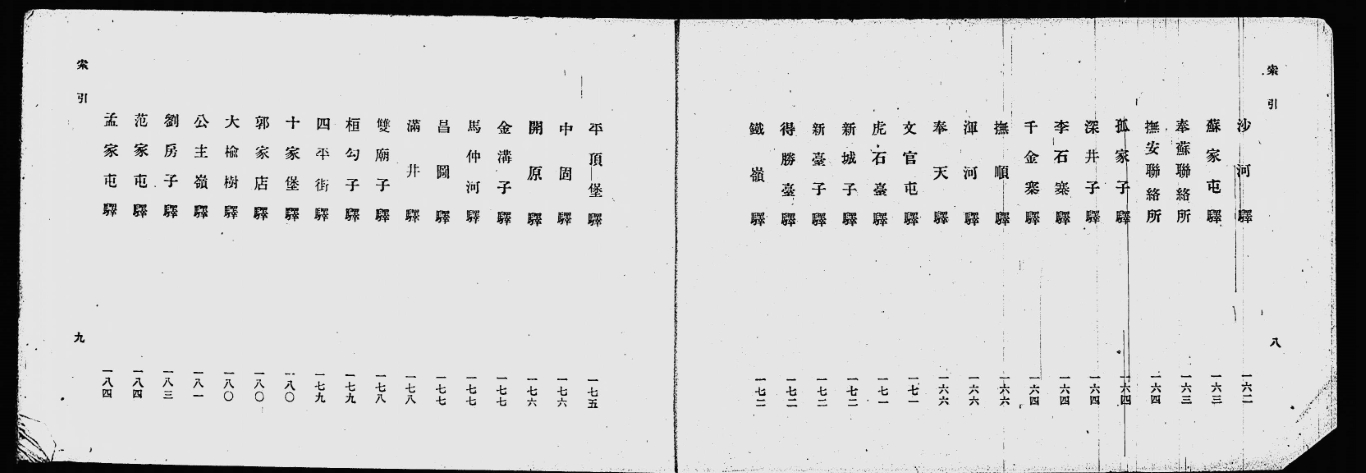 索引
沙河驛 一六二
蘇家屯驛 一六三
奉蘇聯絡所 一六三
撫安聯絡所 一六四
孤家子驛 一六四
深井子驛 一六四
李石寨驛 一六四
千金寨驛 一六四
撫順驛 一六六
渾河驛 一六六
奉天驛 一六六
文官屯驛 一七一
虎石臺驛 一七一
新城子驛 一七二
新臺子驛 一七二
得勝臺驛 一七二
鐵嶺驛 一七二
八
平頂堡驛 一七五
中固驛 一七六
開原驛 一七六
金溝子驛 一七七
馬仲河驛 一七七
昌圖驛 一七七
滿井驛 一七八
雙廟子驛 一七八
桓勾子驛 一七九
四平街驛 一七九
十家堡驛 一八〇
郭家店驛 一八〇
大楡樹驛 一八〇
公主嶺驛 一八一
劉房子驛 一八三
范家屯驛 一八四
孟家屯驛 一八四
索引
九